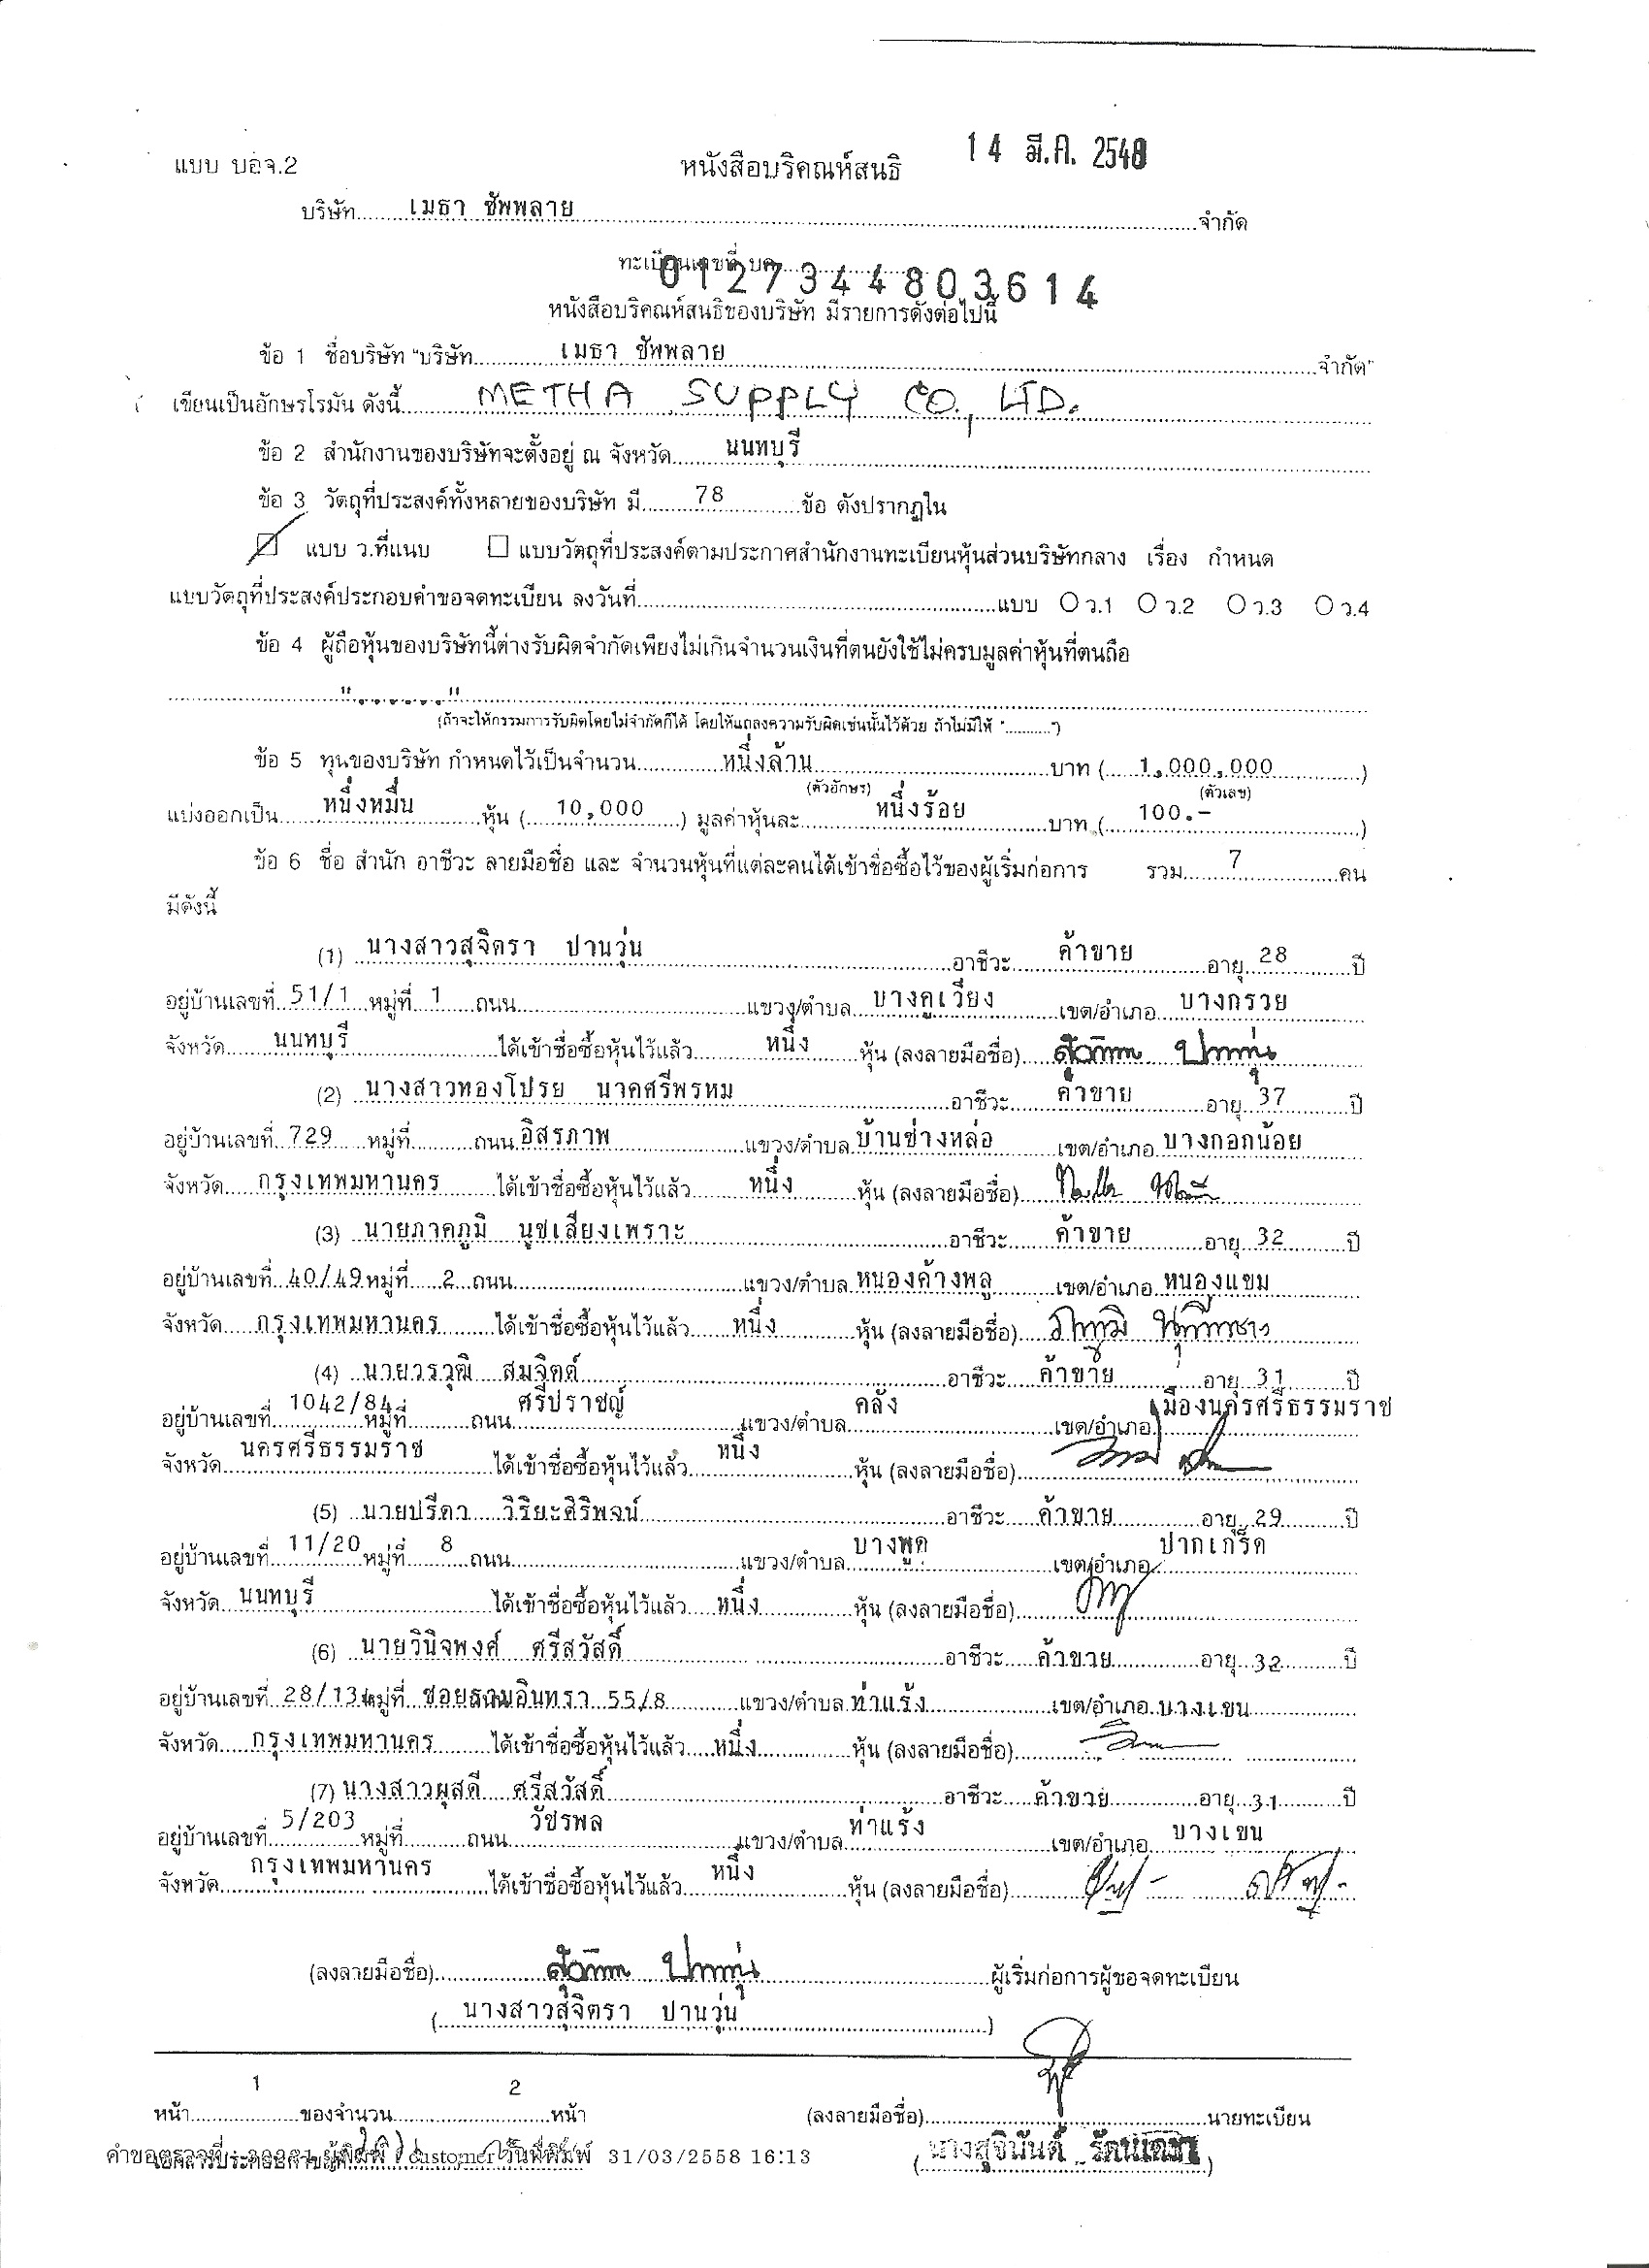 14 มี.ค. 2548
แบบ บอจ.2 หนังสือบริคณห์สนธิ
บริษัท......เมธา ซัพพลาย......จำกัด
ทะเบียนเลขที่ บค......
0127344803614
หนังสือบริคณห์สนธิของบริษัท มีรายการดังต่อไปนี้
ข้อ 1 ชื่อบริษัท "บริษัท......เมธา ซัพพลาย......จำกัด"
เขียนเป็นอักษรโรมัน ดังนี้......METHA SUPPLY CO., LTD.
ข้อ 2 สำนักงานของบริษัทจะตั้งอยู่ ณ จังหวัด......นนทบุรี......
ข้อ 3 วัตถุที่ประสงค์ทั้งหลายของบริษัท มี......78......ข้อ ดังปรากฏใน
☑ แบบ ว.ที่แนบ ☐ แบบวัตถุที่ประสงค์ตามประกาศสำนักงานทะเบียนหุ้นส่วนบริษัทกลาง เรื่อง กำหนด
แบบวัตถุที่ประสงค์ประกอบคำขอจดทะเบียน ลงวันที่......แบบ O ว.1 O ว.2 O ว.3 O ว.4
ข้อ 4 ผู้ถือหุ้นของบริษัทนี้ต่างรับผิดจำกัดเพียงไม่เกินจำนวนเงินที่ตนยังใช้ไม่ครบมูลค่าหุ้นที่ตนถือ
......"......."......
(ถ้าจะให้กรรมการรับผิดโดยไม่จำกัดก็ได้ โดยให้แถลงความรับผิดเช่นนั้นไว้ด้วย ถ้าไม่มีให้ "...........")
ข้อ 5 ทุนของบริษัท กำหนดไว้เป็นจำนวน......หนึ่งล้าน......บาท (......1,000,000......)
(ตัวอักษร) (ตัวเลข)
แบ่งออกเป็น......หนึ่งหมื่น......หุ้น (......10,000......) มูลค่าหุ้นละ......หนึ่งร้อย......บาท (......100.-......)
ข้อ 6 ชื่อ สำนัก อาชีวะ ลายมือชื่อ และ จำนวนหุ้นที่แต่ละคนได้เข้าชื่อซื้อไว้ของผู้เริ่มก่อการ รวม......7......คน
มีดังนี้
(1) นางสาวสุจิตรา ปานวุ่น......อาชีวะ......ค้าขาย......อายุ 28......ปี
อยู่บ้านเลขที่ 51/1 หมู่ที่ 1 ถนน......แขวง/ตำบล บางคูเวียง......เขต/อำเภอ บางกรวย
จังหวัด......นนทบุรี......ได้เข้าชื่อซื้อหุ้นไว้แล้ว......หนึ่ง......หุ้น (ลงลายมือชื่อ)......
(2) นางสาวทองโปรย นาคศรีพรหม......อาชีวะ......ค้าขาย......อายุ 37......ปี
อยู่บ้านเลขที่ 729 หมู่ที่......ถนน อิสรภาพ......แขวง/ตำบล บ้านช่างหล่อ......เขต/อำเภอ บางกอกน้อย
จังหวัด......กรุงเทพมหานคร......ได้เข้าชื่อซื้อหุ้นไว้แล้ว......หนึ่ง......หุ้น (ลงลายมือชื่อ)......
(3) นายภาคภูมิ นุชเสียงเพราะ......อาชีวะ......ค้าขาย......อายุ 32......ปี
อยู่บ้านเลขที่ 40/49 หมู่ที่ 2 ถนน......แขวง/ตำบล หนองค้างพลู......เขต/อำเภอ หนองแขม
จังหวัด......กรุงเทพมหานคร......ได้เข้าชื่อซื้อหุ้นไว้แล้ว......หนึ่ง......หุ้น (ลงลายมือชื่อ)......
(4) นายวรวุฒิ สมจิตต์......อาชีวะ......ค้าขาย......อายุ 31......ปี
อยู่บ้านเลขที่ 1042/84 หมู่ที่ ถนน ศรีปราชญ์......แขวง/ตำบล คลัง......เขต/อำเภอ เมืองนครศรีธรรมราช
จังหวัด นครศรีธรรมราช......ได้เข้าชื่อซื้อหุ้นไว้แล้ว......หนึ่ง......หุ้น (ลงลายมือชื่อ)......
(5) นายปรีดา วิริยะศิริพจน์......อาชีวะ......ค้าขาย......อายุ 29......ปี
อยู่บ้านเลขที่ 11/20 หมู่ที่ 8 ถนน......แขวง/ตำบล บางพูด......เขต/อำเภอ ปากเกร็ด
จังหวัด นนทบุรี......ได้เข้าชื่อซื้อหุ้นไว้แล้ว......หนึ่ง......หุ้น (ลงลายมือชื่อ)......
(6) นายวินิจพงศ์ ศรีสวัสดิ์......อาชีวะ......ค้าขาย......อายุ 32......ปี
อยู่บ้านเลขที่ 28/134 หมู่ที่ ซอยรามอินทรา 55/8......แขวง/ตำบล ท่าแร้ง......เขต/อำเภอ บางเขน
จังหวัด......กรุงเทพมหานคร......ได้เข้าชื่อซื้อหุ้นไว้แล้ว......หนึ่ง......หุ้น (ลงลายมือชื่อ)......
(7) นางสาวผุสดี ศรีสวัสดิ์......อาชีวะ......ค้าขาย......อายุ 31......ปี
อยู่บ้านเลขที่ 5/203 หมู่ที่......ถนน วัชรพล......แขวง/ตำบล ท่าแร้ง......เขต/อำเภอ บางเขน
จังหวัด......กรุงเทพมหานคร......ได้เข้าชื่อซื้อหุ้นไว้แล้ว......หนึ่ง......หุ้น (ลงลายมือชื่อ)......
(ลงลายมือชื่อ)......ผู้เริ่มก่อการผู้ขอจดทะเบียน
(......นางสาวสุจิตรา ปานวุ่น......)
หน้า......1......ของจำนวน......2......หน้า (ลงลายมือชื่อ)......นายทะเบียน
ผู้พิมพ์ : customer วันที่พิมพ์ 31/03/2558 16:13